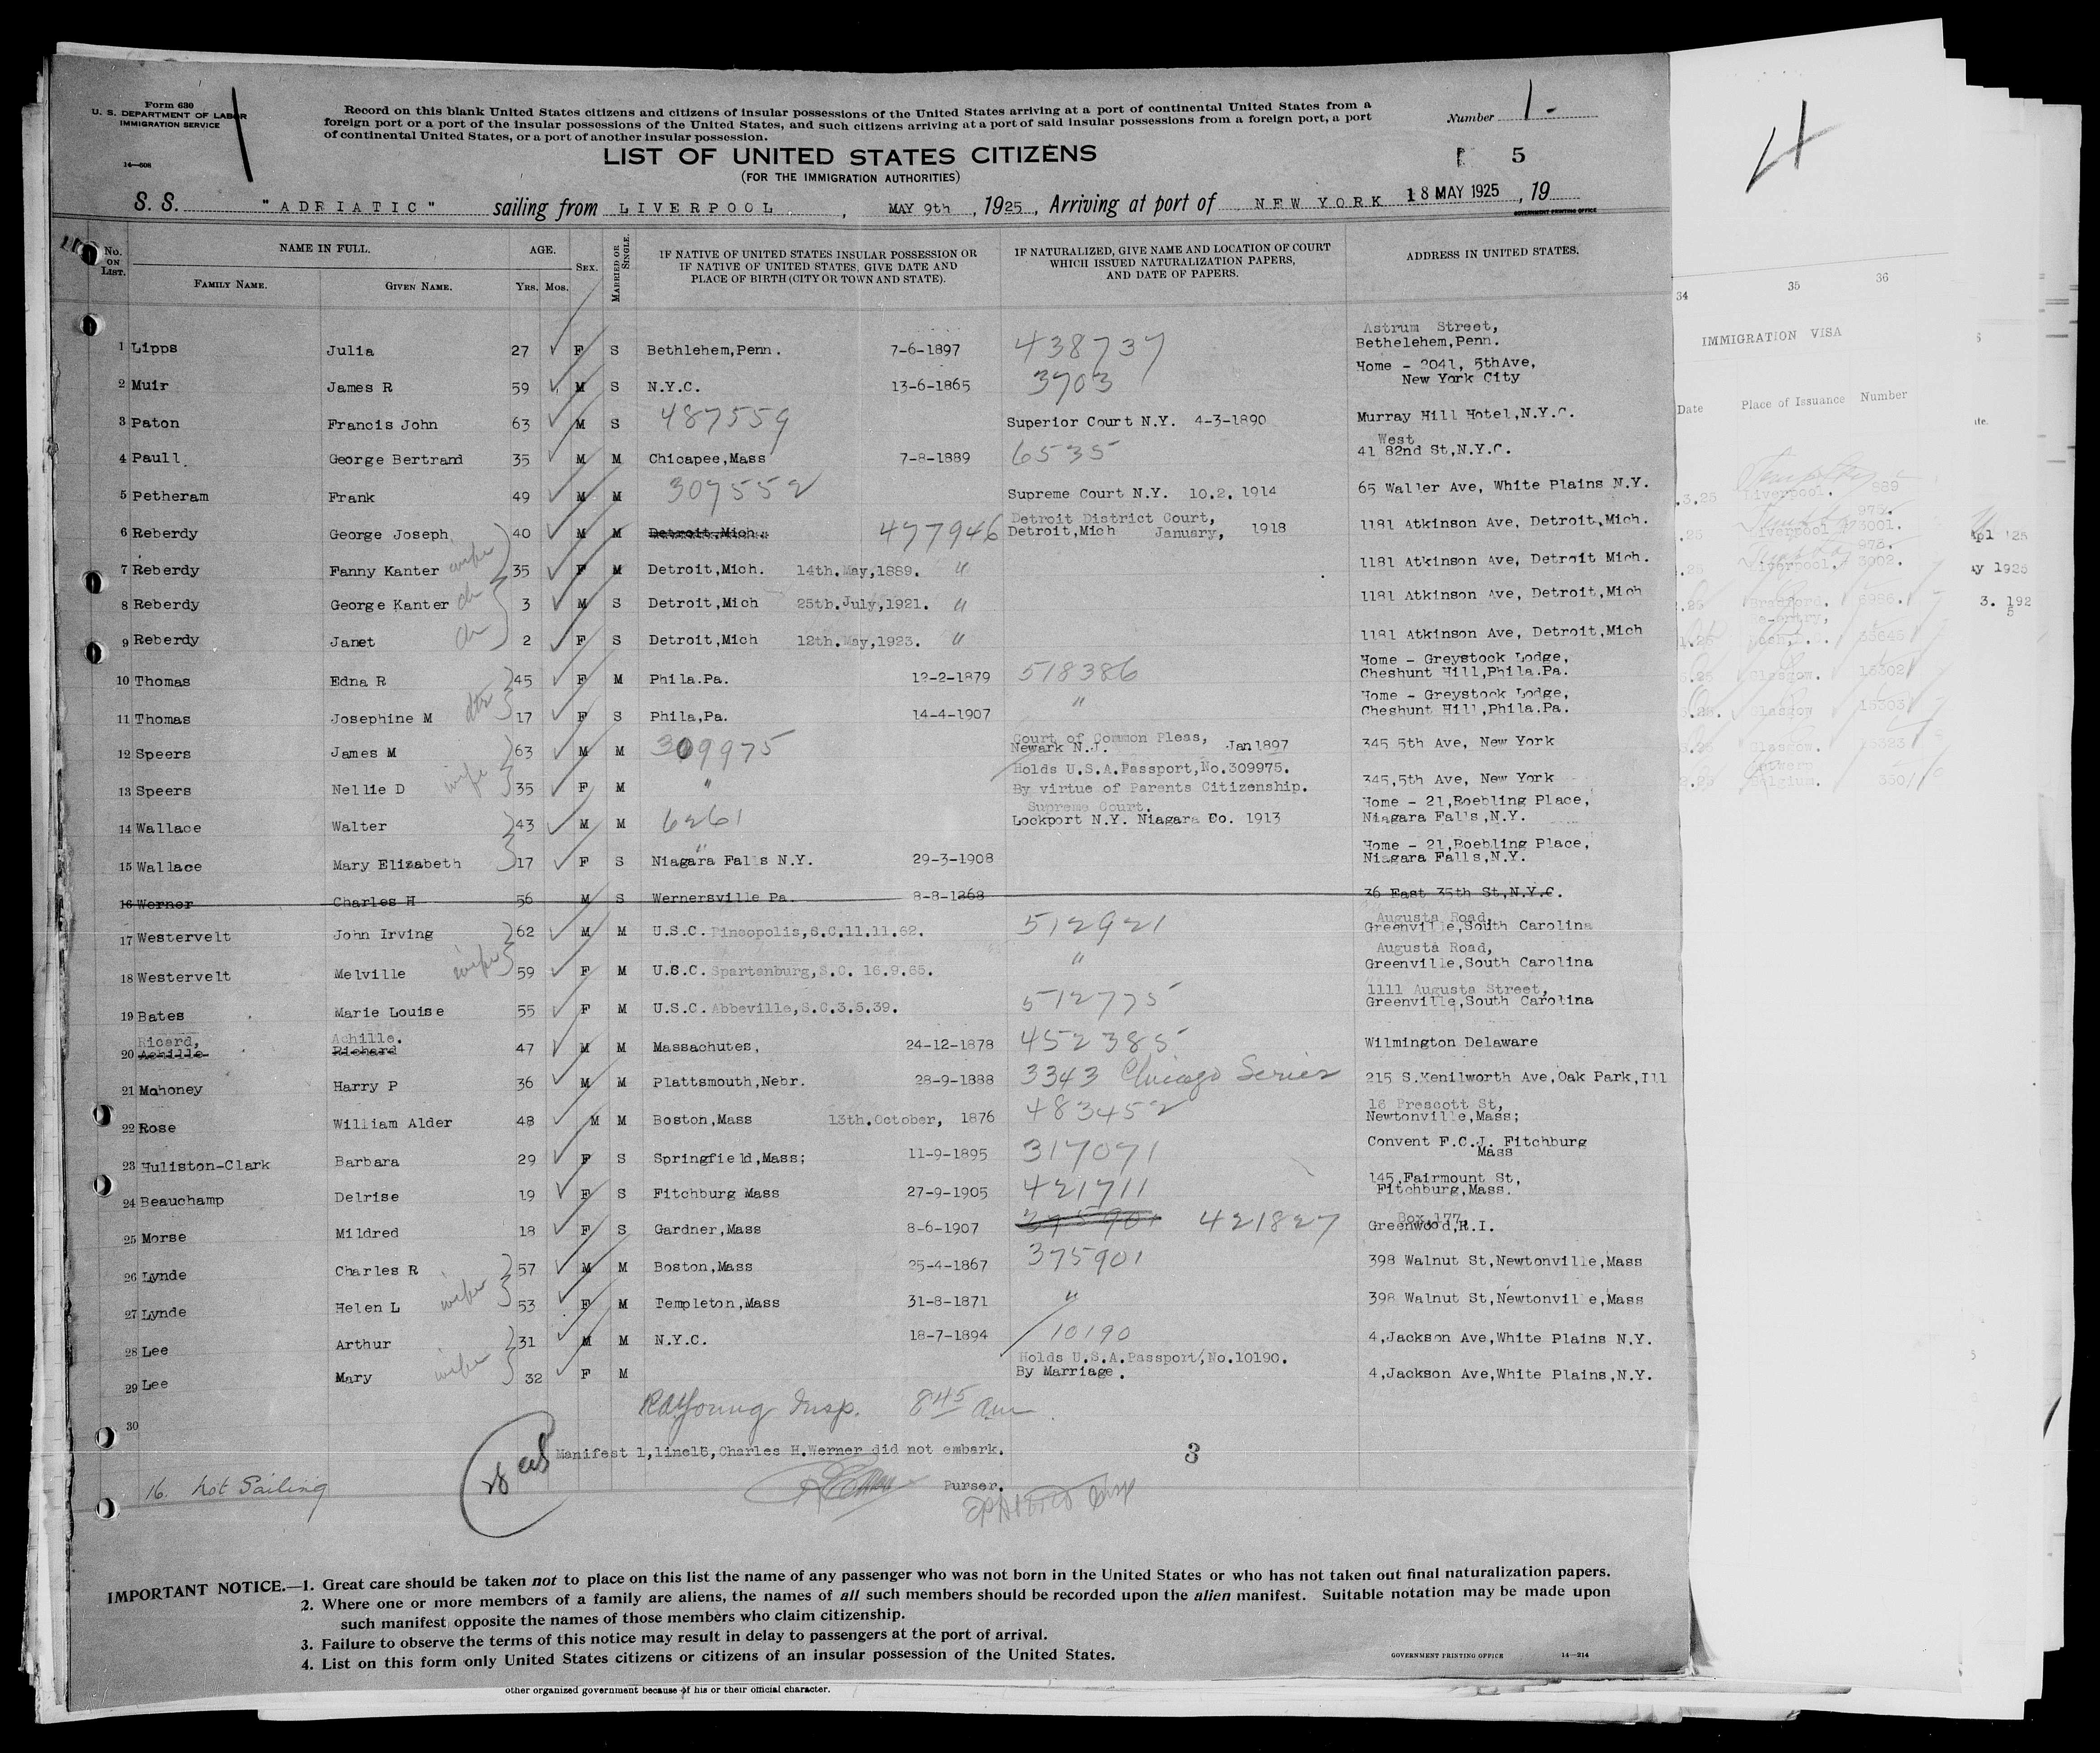 Form 630
U. S. DEPARTMENT OF LABOR
IMMIGRATION SERVICE
14—608
Record on this blank United States citizens and citizens of insular possessions of the United States arriving at a port of continental United States from a
foreign port or a port of the insular possessions of the United States, and such citizens arriving at a port of said insular possessions from a foreign port, a port
of continental United States, or a port of another insular possession.
Number 1-
LIST OF UNITED STATES CITIZENS
(FOR THE IMMIGRATION AUTHORITIES)
5
S. S. "ADRIATIC" sailing from LIVERPOOL, MAY 9th, 1925, Arriving at port of NEW YORK 18 MAY 1925, 19
GOVERNMENT PRINTING OFFICE
No. ON LIST. NAME IN FULL. FAMILY NAME. GIVEN NAME. AGE. Yrs. Mos. SEX. MARRIED OR SINGLE. IF NATIVE OF UNITED STATES INSULAR POSSESSION OR IF NATIVE OF UNITED STATES, GIVE DATE AND PLACE OF BIRTH (CITY OR TOWN AND STATE). IF NATURALIZED, GIVE NAME AND LOCATION OF COURT WHICH ISSUED NATURALIZATION PAPERS, AND DATE OF PAPERS. ADDRESS IN UNITED STATES.
1 Lipps Julia 27 F S Bethlehem,Penn. 7-6-1897 438737 Astrum Street, Bethelehem,Penn.
2 Muir James R 59 M S N.Y.C. 13-6-1865 3703 Home - 2041, 5thAve, New York City
3 Paton Francis John 63 M S 487559 Superior Court N.Y. 4-3-1890 Murray Hill Hotel,N.Y.C.
4 Paull. George Bertrand 35 M M Chicapee,Mass 7-8-1889 6535 41 West 82nd St,N.Y.C.
5 Petheram Frank 49 M M 307552 Supreme Court N.Y. 10.2. 1914 65 Waller Ave, White Plains N.Y.
6 Reberdy George Joseph 40 M M Detroit,Mich. 477946 Detroit District Court, Detroit,Mich January, 1918 1181 Atkinson Ave, Detroit,Mich.
7 Reberdy Fanny Kanter wife 35 F M Detroit,Mich. 14th.May,1889. " 1181 Atkinson Ave, Detroit Mich.
8 Reberdy George Kanter ch 3 M S Detroit,Mich 25th.July,1921. " 1181 Atkinson Ave, Detroit,Mich
9 Reberdy Janet ch 2 F S Detroit,Mich 12th.May,1923. " 1181 Atkinson Ave, Detroit,Mich
10 Thomas Edna R 45 F M Phila.Pa. 12-2-1879 518386 Home - Greystock Lodge, Cheshunt Hill,Phila.Pa.
11 Thomas Josephine M dtr 17 F S Phila,Pa. 14-4-1907 " Home - Greystock Lodge, Cheshunt Hill,Phila.Pa.
12 Speers James M 63 M M 309975 Court of Common Pleas, Newark N.J. Jan 1897 345 5th Ave, New York
13 Speers Nellie D wife 35 F M " Holds U.S.A.Passport,No.309975. By virtue of Parents Citizenship. 345,5th Ave, New York
14 Wallace Walter 43 M M 6261 Supreme Court. Lockport N.Y. Niagara Co. 1913 Home - 21,Roebling Place, Niagara Falls,N.Y.
15 Wallace Mary Elizabeth 17 F S " Niagara Falls N.Y. 29-3-1908 Home - 21,Roebling Place, Niagara Falls,N.Y.
16 Werner Charles H 56 M S Wernersville Pa. 8-8-1868 36 East 35th St,N.Y.C.
17 Westervelt John Irving 62 M M U.S.C. Pineopolis,S.C.11.11.62. 512921 Augusta Road, Greenville,South Carolina
18 Westervelt Melville wife 59 F M U.S.C. Spartanburg,S.C. 16.9.65. " Augusta Road, Greenville,South Carolina
19 Bates Marie Louise 55 F M U.S.C. Abbeville,S.C.3.5.39. 512775 1111 Augusta Street, Greenville,South Carolina
20 Ricard, Achille Achille. Richard 47 M M Massachutes, 24-12-1878 452385 Wilmington Delaware
21 Mahoney Harry P 36 M M Plattsmouth,Nebr. 28-9-1888 3343 Chicago Series 215 S.Kenilworth Ave,Oak Park,Ill
22 Rose William Alder 48 M M Boston,Mass 13th.October, 1876 483452 18 Prescott St, Newtonville,Mass;
23 Huliston-Clark Barbara 29 F S Springfield,Mass; 11-9-1895 317071 Convent F.C.J. Fitchburg Mass
24 Beauchamp Delrise 19 F S Fitchburg Mass 27-9-1905 421711 145,Fairmount St, Fitchburg,Mass.
25 Morse Mildred 18 F S Gardner,Mass 8-6-1907 421827 Box 177, Greenwood,R.I.
26 Lynde Charles R 57 M M Boston,Mass 25-4-1867 375901 398 Walnut St,Newtonville,Mass
27 Lynde Helen L wife 53 F M Templeton,Mass 31-8-1871 " 398 Walnut St,Newtonville,Mass
28 Lee Arthur 31 M M N.Y.C. 18-7-1894 10190 4,Jackson Ave,White Plains N.Y.
29 Lee Mary wife 32 F M Holds U.S.A.Passport,No.10190. By Marriage. 4,Jackson Ave,White Plains,N.Y.
30
Young Insp. 8 45 am
Manifest 1,line16,Charles H.Werner did not embark.
3
16. Not Sailing
28
Purser.
IMPORTANT NOTICE.—1. Great care should be taken not to place on this list the name of any passenger who was not born in the United States or who has not taken out final naturalization papers.
2. Where one or more members of a family are aliens, the names of all such members should be recorded upon the alien manifest. Suitable notation may be made upon
such manifest opposite the names of those members who claim citizenship.
3. Failure to observe the terms of this notice may result in delay to passengers at the port of arrival.
4. List on this form only United States citizens or citizens of an insular possession of the United States.
GOVERNMENT PRINTING OFFICE 14—214
other organized government because of his or their official character.
34 35 36
IMMIGRATION VISA
Date Place of Issuance Number
Liverpool. 889
Glasgow. 15302
Glasgow 15303
Belgium.